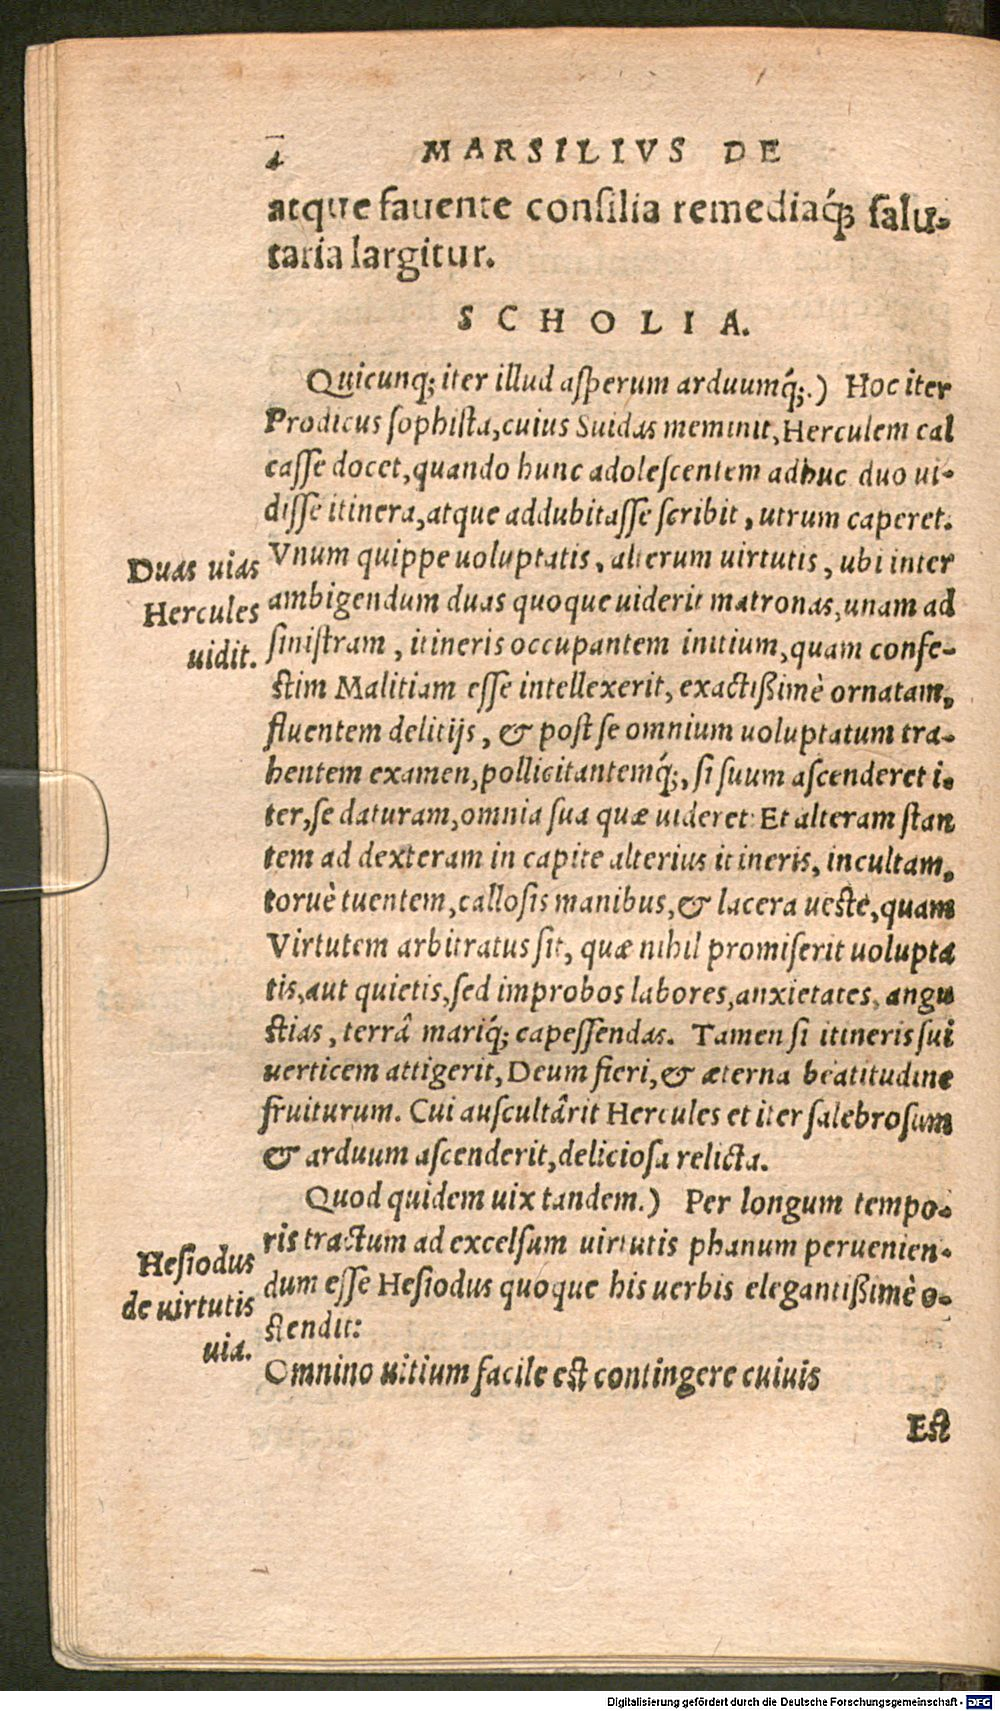 4 MARSILIVS DE
atque fauente consilia remediaq́; salu-
taria largitur.
SCHOLIA.
Quicunq; iter illud asperum arduumq́;.) Hoc iter
Prodicus sophista, cuius Suidas meminit, Herculem cal
casse docet, quando hunc adolescentem adhuc duo ui-
disse itinera, atque addubitasse scribit, utrum caperet.
Vnum quippe uoluptatis, alterum uirtutis, ubi inter
ambigendum duas quoque uiderit matronas, unam ad
sinistram, itineris occupantem initium, quam confe-
stim Malitiam esse intellexerit, exactißimè ornatam,
fluentem delitijs, & post se omnium uoluptatum tra-
hentem examen, pollicitantemq́;, si suum ascenderet i-
ter, se daturam, omnia sua quæ uideret: Et alteram stan
tem ad dexteram in capite alterius itineris, incultam,
toruè tuentem, callosis manibus, & lacera ueste, quam
Virtutem arbitratus sit, quæ nihil promiserit uolupta
tis, aut quietis, sed improbos labores, anxietates, angu
stias, terrâ mariq́; capessendas. Tamen si itineris sui
uerticem attigerit, Deum fieri, & æterna beatitudine
fruiturum. Cui auscultârit Hercules et iter salebrosum
& arduum ascenderit, deliciosa relicta.
Duas uias
Hercules
uidit.
Quod quidem uix tandem.) Per longum tempo-
ris tractum ad excelsum uirtutis phanum peruenien-
dum esse Hesiodus quoque his uerbis elegantißimè o-
stendit:
Omnino uitium facile est contingere cuiuis
Hesiodus
de uirtutis
uia.
Est
Digitalisierung gefördert durch die Deutsche Forschungsgemeinschaft - DFG